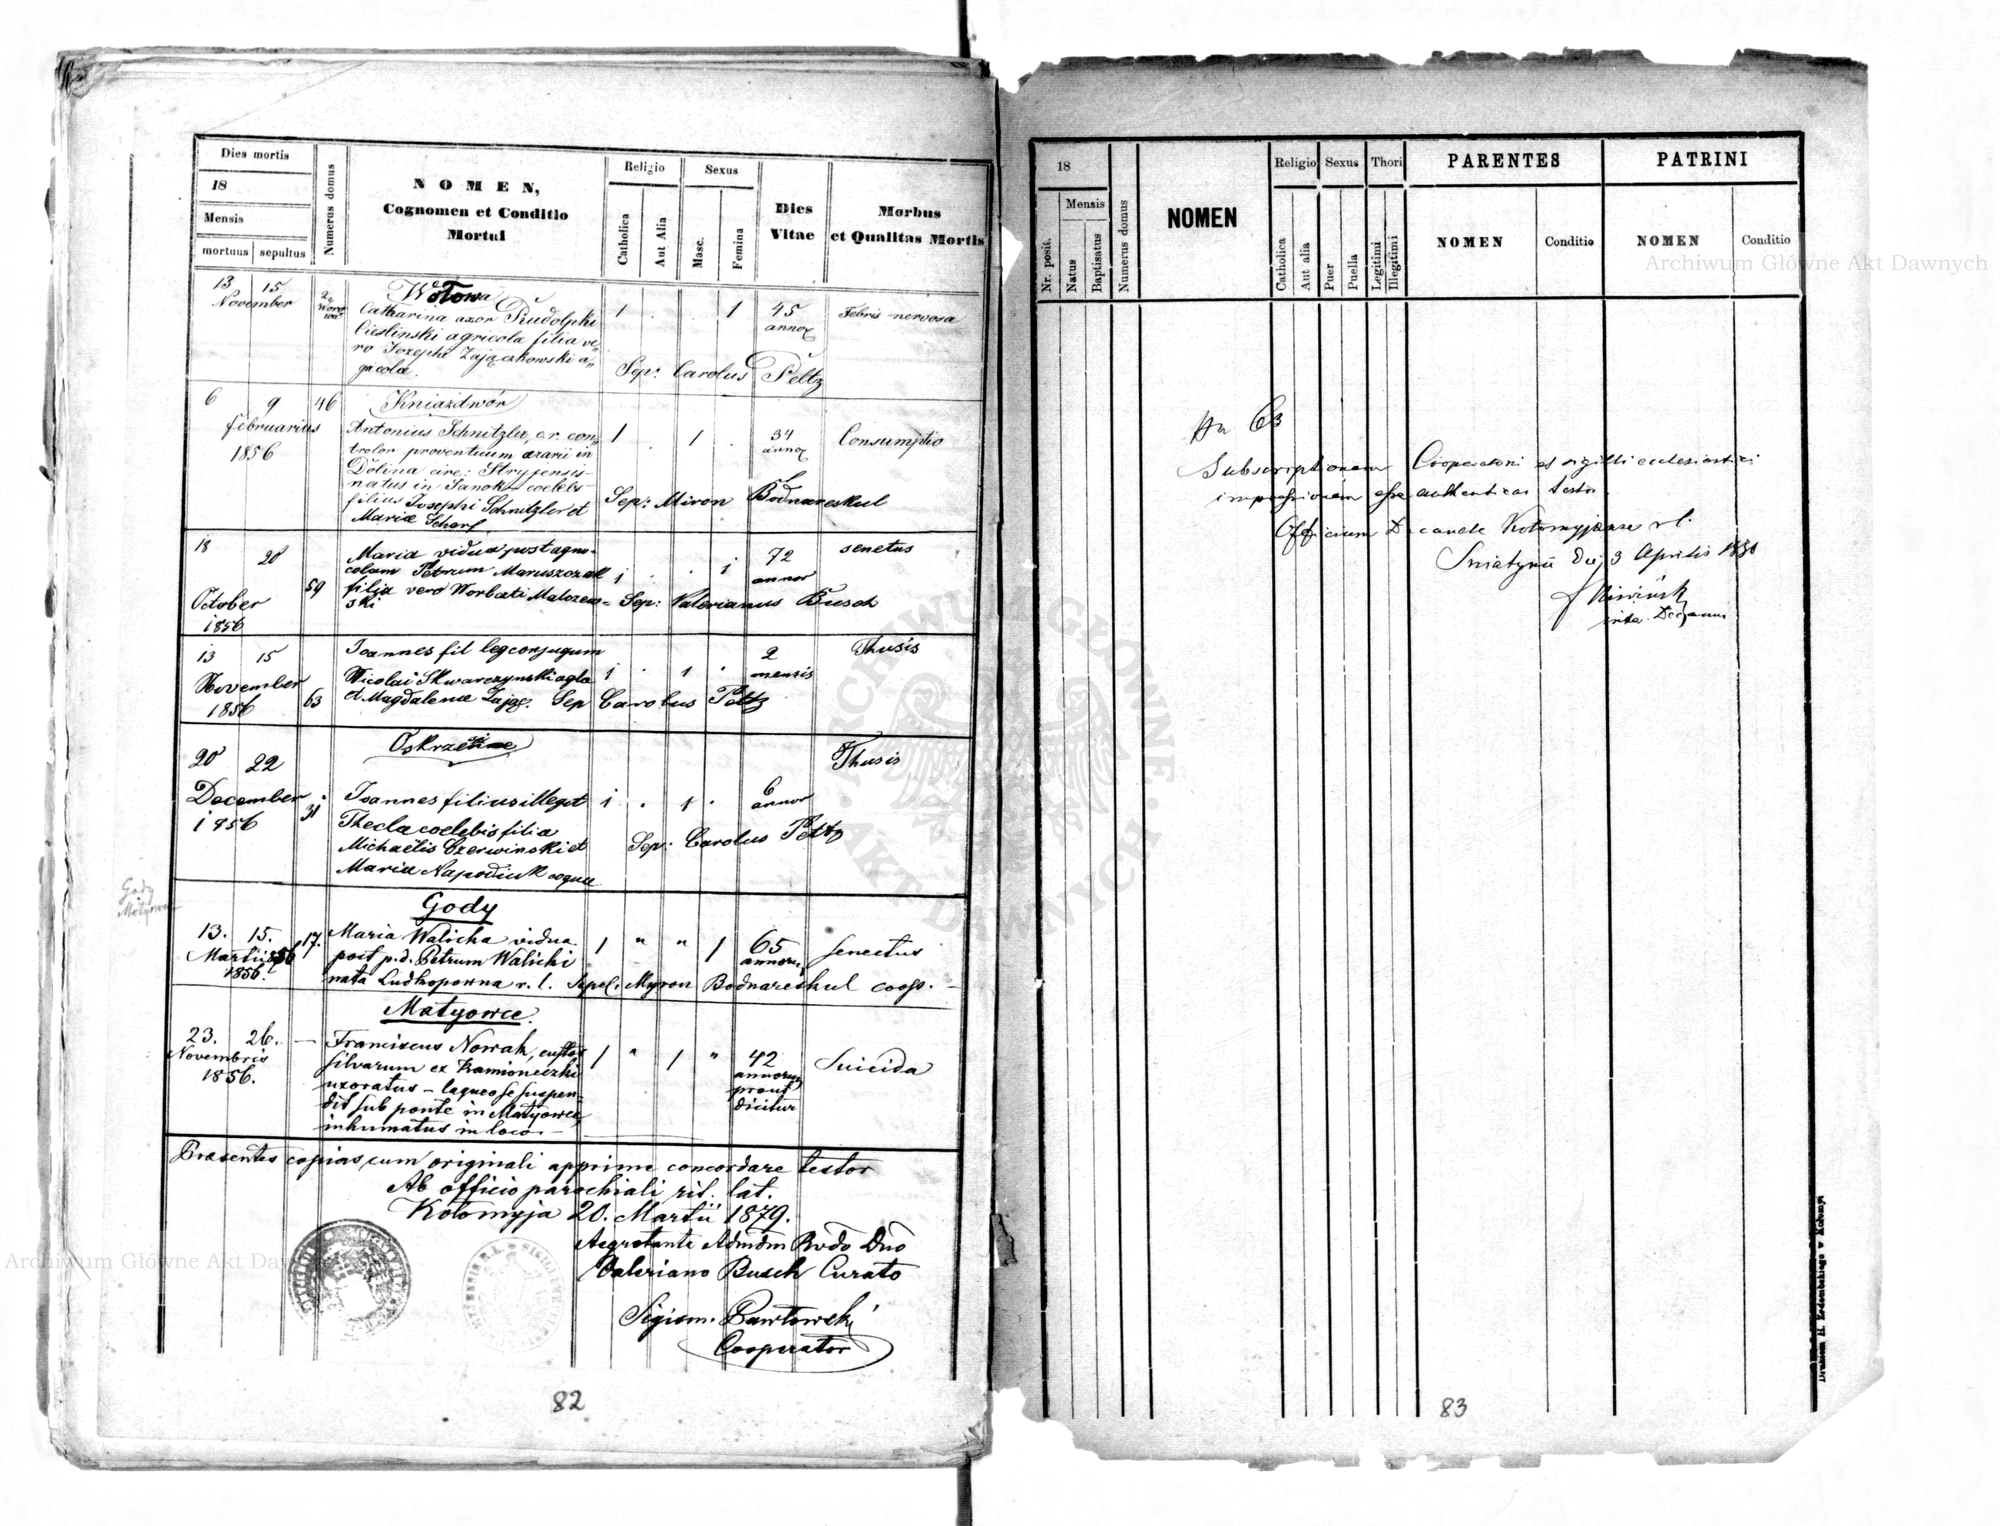 Dies mortis
18
Mensis
mortuus sepultus
Numerus domus
NOMEN,
Cognomen et Conditio
Mortui
Religio
Catholica
Aut Alia
Sexus
Masc.
Femina
Dies
Vitae
Morbus
et Qualitas Mortis
13 15
November
Catharina uxor Rudolphi
Cieslinski agricola filia ve-
ro Josephi Zajączkowski a-
gricolae.
1 . . 1
45
Febris nervosa
Sep: Carolus Peltz
6 9 46
Februarius
1856
Kniazdwór
Antonius Schnitzler, c.r. con-
trolor proventuum aerarii in
Dolina circ: Stryjensis
natus in Sanok coelebs
filius Josephi Schnitzler et
Mariae Scharf
1 . 1 .
34
Consumptio
Sep: Miron Bodnareskul
18 20
October
1856
59
Maria vidua post agri-
colam Petrum Maruszczak
filia vero Norberti Malczew-
ski
1 . . 1
72
annor
senectus
Sep: Valerianus Busch
13 15
November
1856
63
Joannes fil leg conjugum
Nicolai Skwarczynski agla
et Magdalenae Zając.
1 . 1 .
2
mensis
Thusis
Sep Carolus Peltz
20 22
December
1856
31
Joannes filius illegit
Thecla coelebis filia
Michaelis Czerwinski et
Maria Napodiuk
1 . 1 .
6
annor
Thusis
Sep: Carolus Peltz
Gody
13. 15. 17.
Martii
1856.
Maria Walicka vidua
post p.d. Petrum Walicki
nata r. l. Sepel: Myron Bodnareskul coop.
1 " " 1
65
annorum
senectus
Matyowce.
23. 26. —
Novembris
1856.
Franciscus Nowak, custos
silvarum ex Kamioneczki
uxoratus – laqueo se suspen-
dit sub ponte in Matyowce,
inhumatus in loco.
1 " 1 "
42
annorum
prout
dicitur
Suicida
Praesentes copias cum originali apprime concordare testor
Ab officio parochiali rit. lat.
Kołomyja 20. Martii 1879.
Aegrotante Admdm Rvdo Dno
Valeriano Busch Curato
Sigism. Pawłowski
Cooperator
82
Gody
18
Nr. posit.
Mensis
Natus
Baptisatus
Numerus domus
NOMEN
Religio
Catholica
Aut alia
Sexus
Puer
Puella
Thori
Legitimi
Illegitimi
PARENTES
NOMEN
Conditio
PATRINI
NOMEN
Conditio
63
Subscriptionem Cooperatoris et sigilli ecclesiastici
impressionem esse authenticas testor
Officium Decanale Kołomyjense r l.
Sniatynii die 3 Aprilis
83
Archiwum Główne Akt Dawnych
Archiwum Główne Akt Dawnych
ARCHIWUM GŁÓWNE AKT DAWNYCH